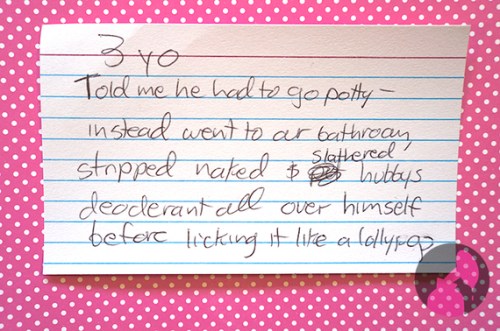 3 yo
Told me he had to go potty -
instead went to our bathroom,
stripped naked & slathered hubbys
deoderant all over himself
before licking it like a lollypop